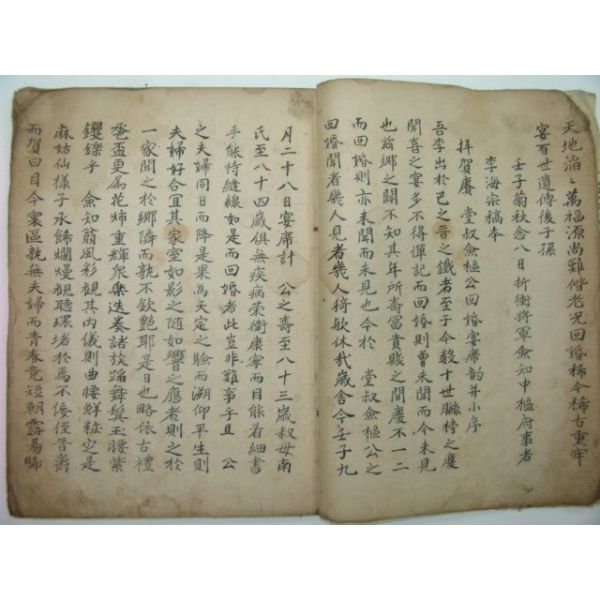 天地滔々萬福源尚難偕老況回婚稀今稀古重牢
宴百世遺傳後子孫
壬子菊秋念八日折衝將軍僉知中樞府事者
李海宗稿本
拜賀慶 堂叔僉樞公回婚宴席韵并小序
吾李出於已之晉之鐵者至于今数十世聯榜之慶
聞喜之宴多不得憚記而回婚則曾未聞而今未見
也前鄉之闕不知其年所壽富貴賤之間慶不一二
而回婚則亦未聞而未見也今於 堂叔僉樞公之
回婚聞者幾人見者幾人猗歟休哉歲舍今壬子九
月二十八日宴席計 公之壽至八十三歲叔母南
氏至八十四歲俱無疾病榮衛康寧而目能看細書
手能持縫線如是而回婚者此豈非難事乎且 公
之夫婦同日而降是果為天定之驗而溯仰平生則
夫婦好合宜其家室如影之随如響之應者則之於
一家聞之於鄉隣而孰不欽艷耶是日也略依古禮
巹盃更爲花姊重輝衆樂迭奏諸族蹈舞鬓玉腰紫
钁鑠乎 僉知翁風彩觀其内儀則曲腰鮮粒空是
麻姑仙樣子承餙爛熳觀聽環堵於焉不侫侄晉爵
而賀曰目今寰區孰無夫婦而青春竞短朝露易晞